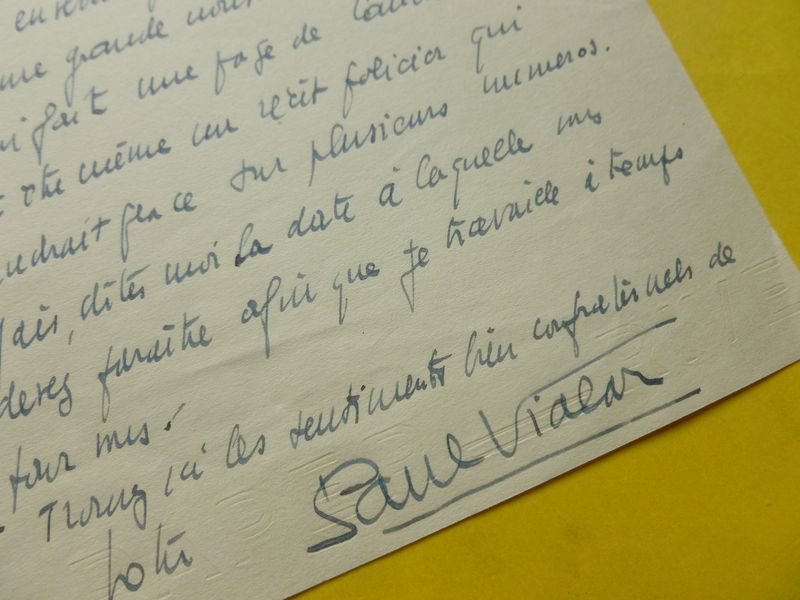 une grande
fait une page de
même un récit policier qui
place sur plusieurs numéros.
Mais, dites moi la date à laquelle vous
paraître afin que je travaille à temps
pour vous.
Trouvez ici les sentiments bien confraternels de
votre Paul Vialar